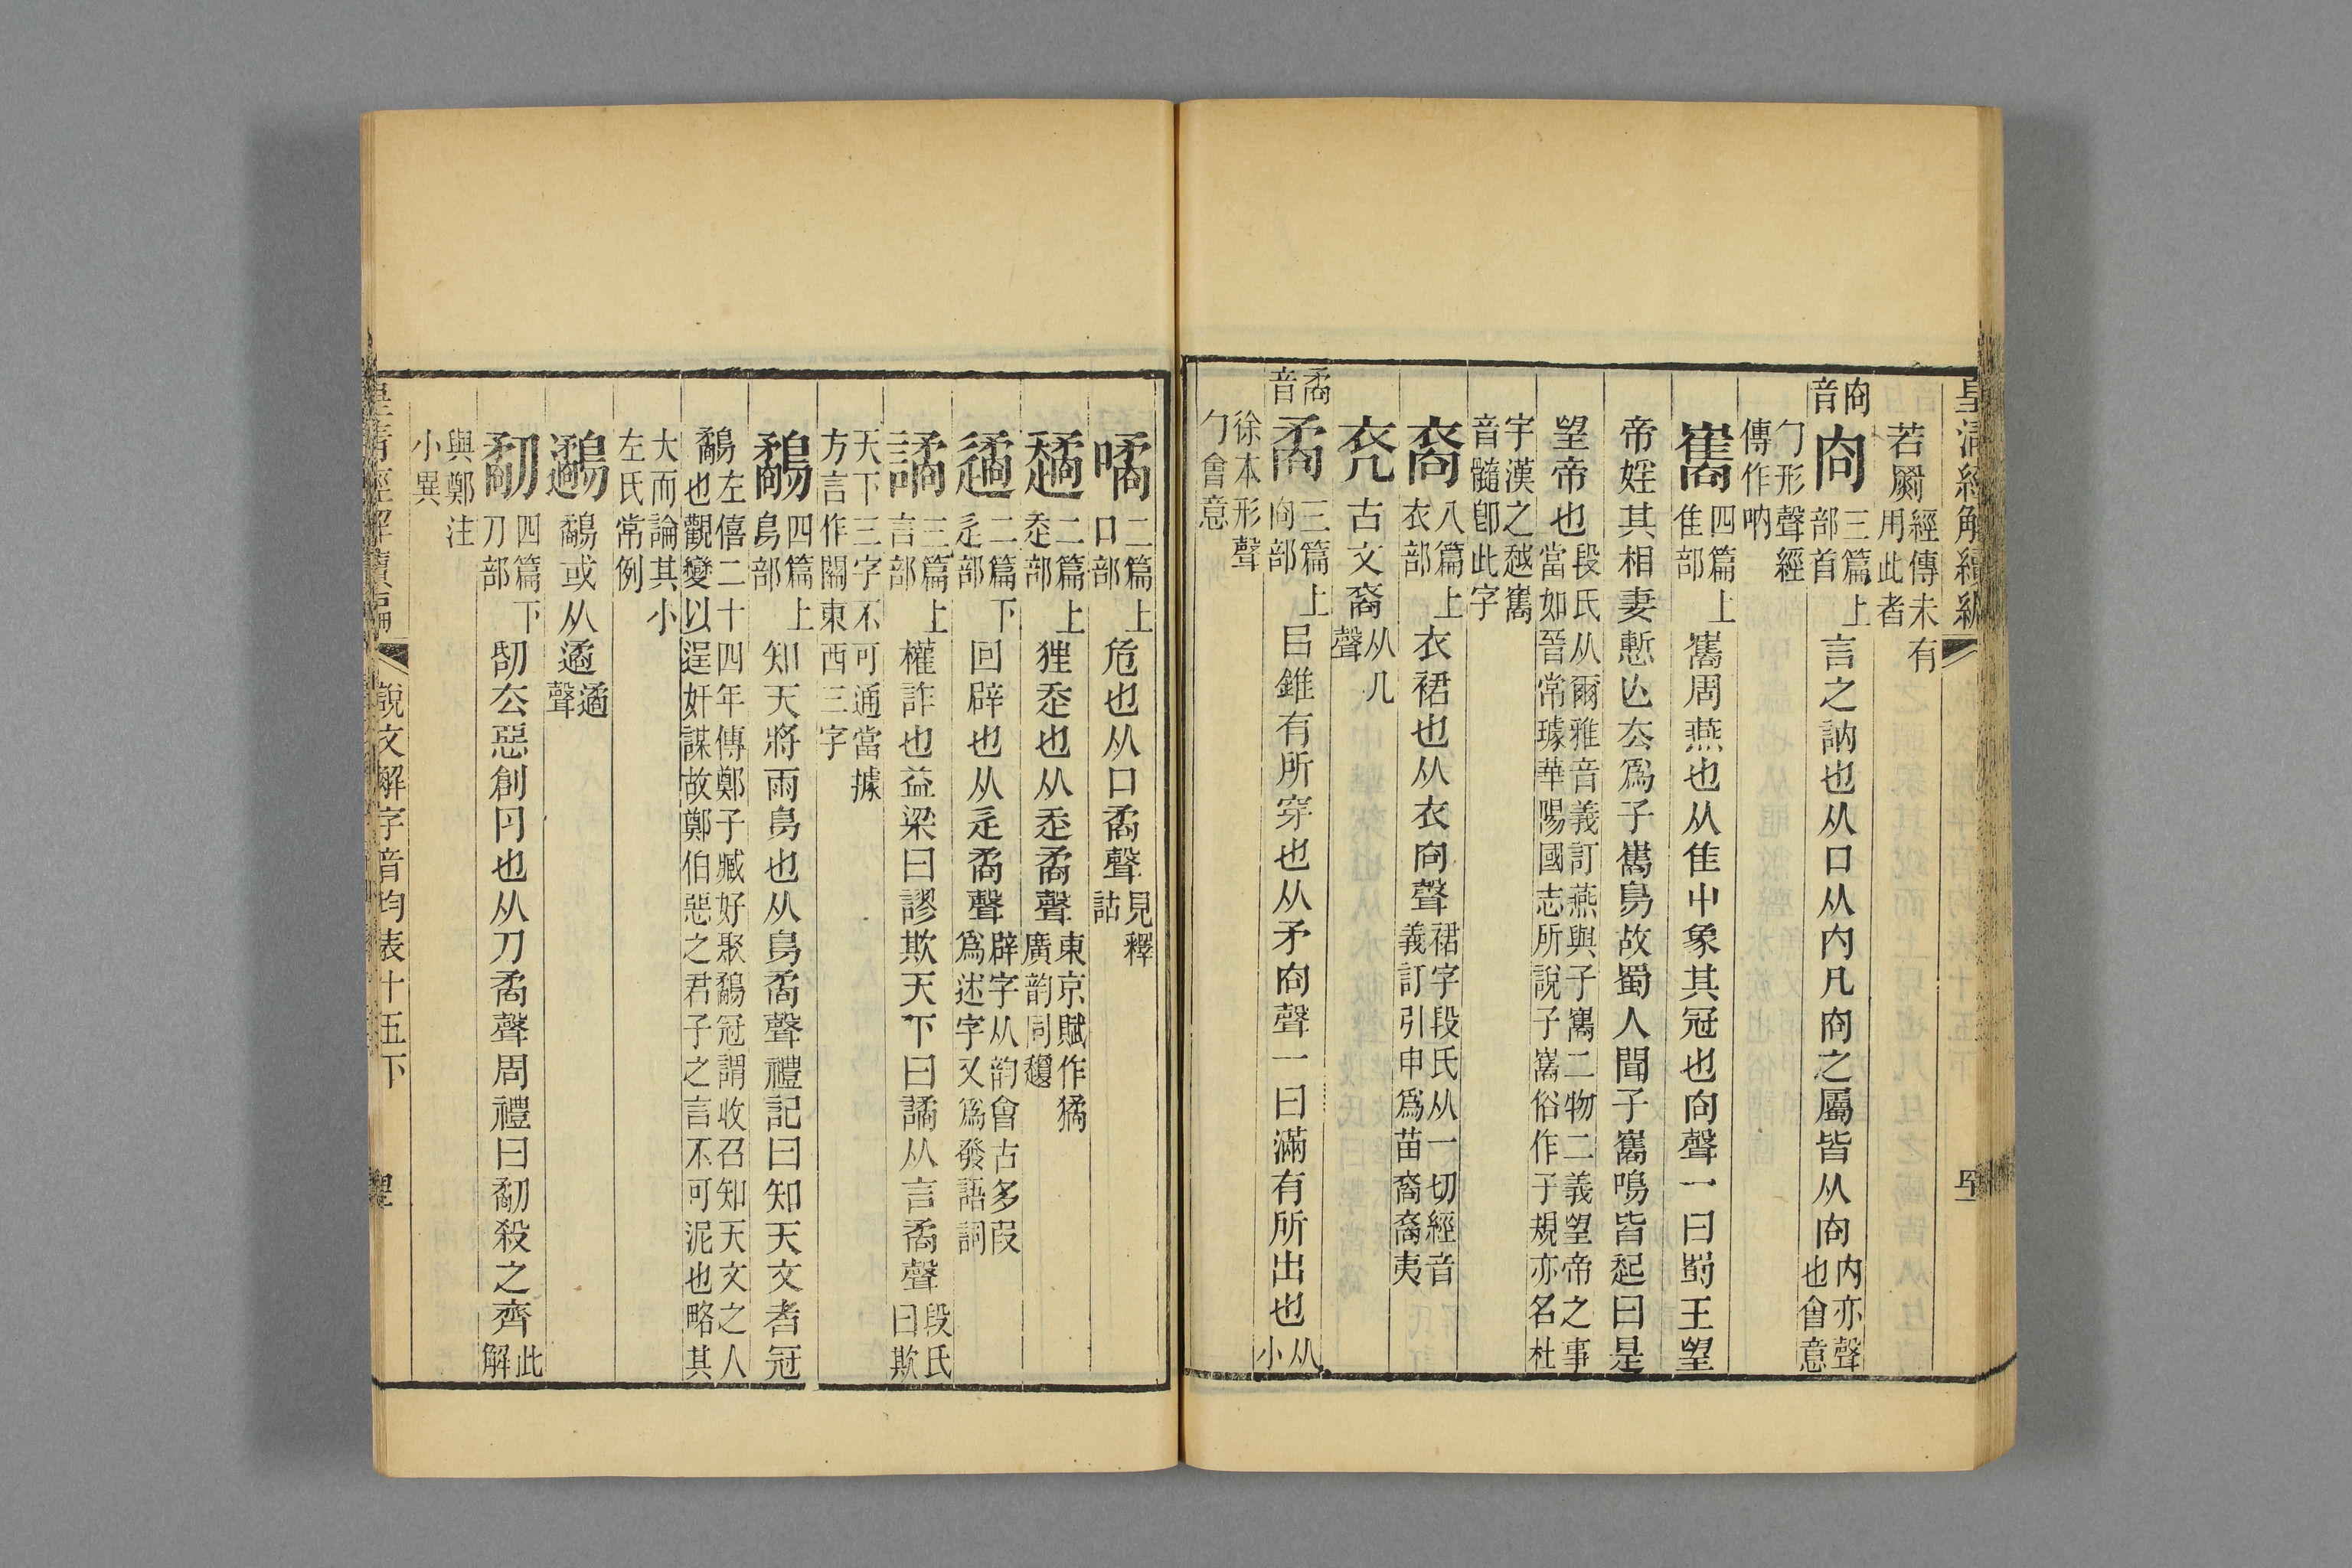 皇清經解續編
若屚經傳未有用此者
㕯音
㕯三篇上部首言之訥也从口从内凡㕯之屬皆从㕯内亦聲也會意
勹形聲經傳作吶
巂四篇上隹部巂周燕也从隹屮象其冠也㕯聲一曰蜀王望
帝婬其相妻慙亾去爲子巂鳥故蜀人聞子巂鳴皆起曰是
望帝也段氏从爾雅音義訂燕與子巂二物二義望帝之事當如晉常璩華陽國志所說子巂俗作子規亦名杜
宇漢之越巂音髓卽此字
裔八篇上衣部衣裙也从衣㕯聲裙字段氏从一切經音義訂引申爲苗裔裔夷
㐲古文裔从几聲
矞音
矞三篇上㕯部㠯錐有所穿也从矛㕯聲一曰滿有所出也从小
徐本形聲勹會意
噊二篇上口部危也从口矞聲見釋詁
趫二篇上走部狂走也从走矞聲東京賦作獝廣韵同
遹二篇下辵部回辟也从辵矞聲辟字从韵會古多叚爲述字又爲發語詞
譎三篇上言部權詐也益梁曰謬欺天下曰譎从言矞聲段氏曰欺
天下三字不可通當據方言作關東西三字
鷸四篇上鳥部知天將雨鳥也从鳥矞聲禮記曰知天文者冠
鷸左僖二十四年傳鄭子臧好聚鷸冠謂收召知天文之人也觀變以逞奸謀故鄭伯惡之君子之言不可泥也略其
大而論其小左氏常例
鷸或从遹遹聲
劀四篇下刀部刮去惡創肉也从刀矞聲周禮曰劀殺之齊此解
與鄭注小異
皇清經解續編
說文解字音均表十五下